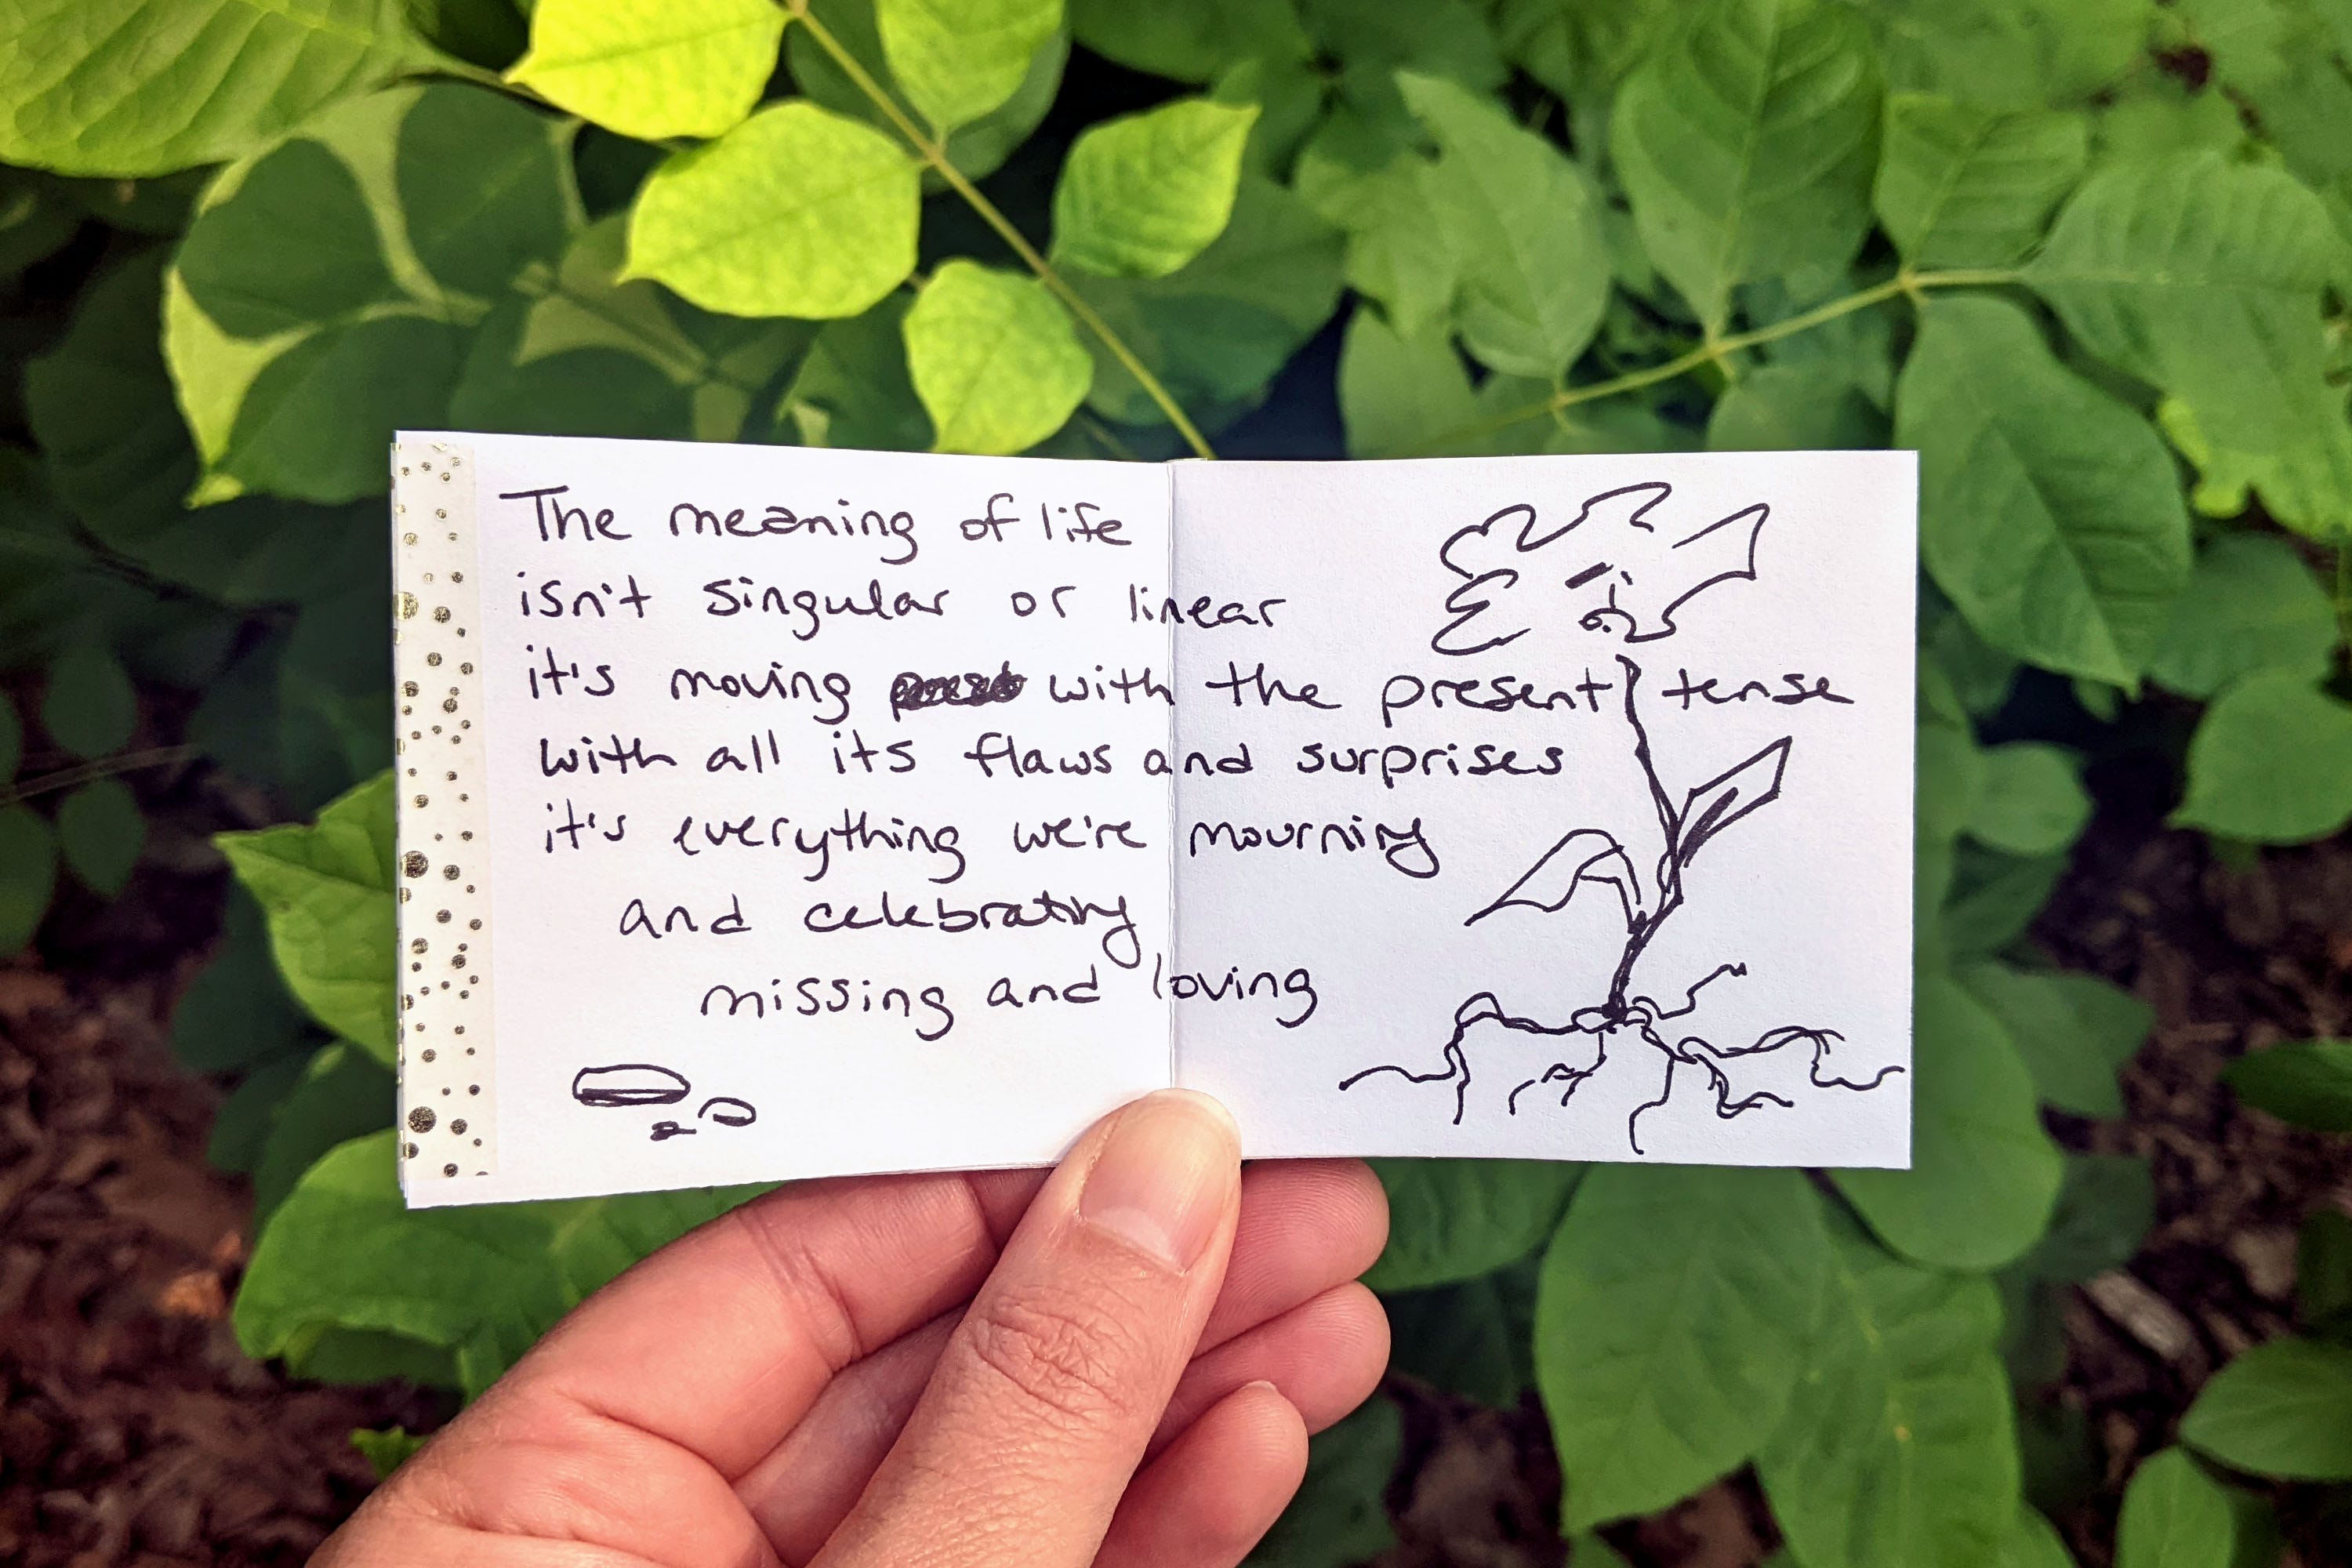 The meaning of life
isn't singular or linear
it's moving with the present tense
with all its flaws and surprises
it's everything we're mourning
and celebrating
missing and loving